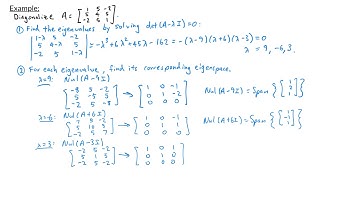 Example:
Diagonalize A = [1 5 -2; 5 4 5; -2 5 1].
① Find the eigenvalues by solving det(A-λI)=0:
|1-λ 5 -2; 5 4-λ 5; -2 5 1-λ| = -λ³+6λ²+45λ-162 = -(λ-9)(λ+6)(λ-3) = 0
λ = 9, -6, 3.
② For each eigenvalue, find its corresponding eigenspace.
λ=9: Nul(A-9I)
[-8 5 -2; 5 -5 5; -2 5 -8] → [1 0 -1; 0 1 -2; 0 0 0] Nul(A-9I) = Span{[1; 2; 1]}
λ=-6: Nul(A+6I)
[7 5 -2; 5 10 5; -2 5 7] → [1 0 -1; 0 1 1; 0 0 0] Nul(A+6I) = Span{[1; -1; 1]}
λ=3: Nul(A-3I)
[-2 5 -2; 5 1 5; -2 5 -2] → [1 0 1; 0 1 0; 0 0 0]